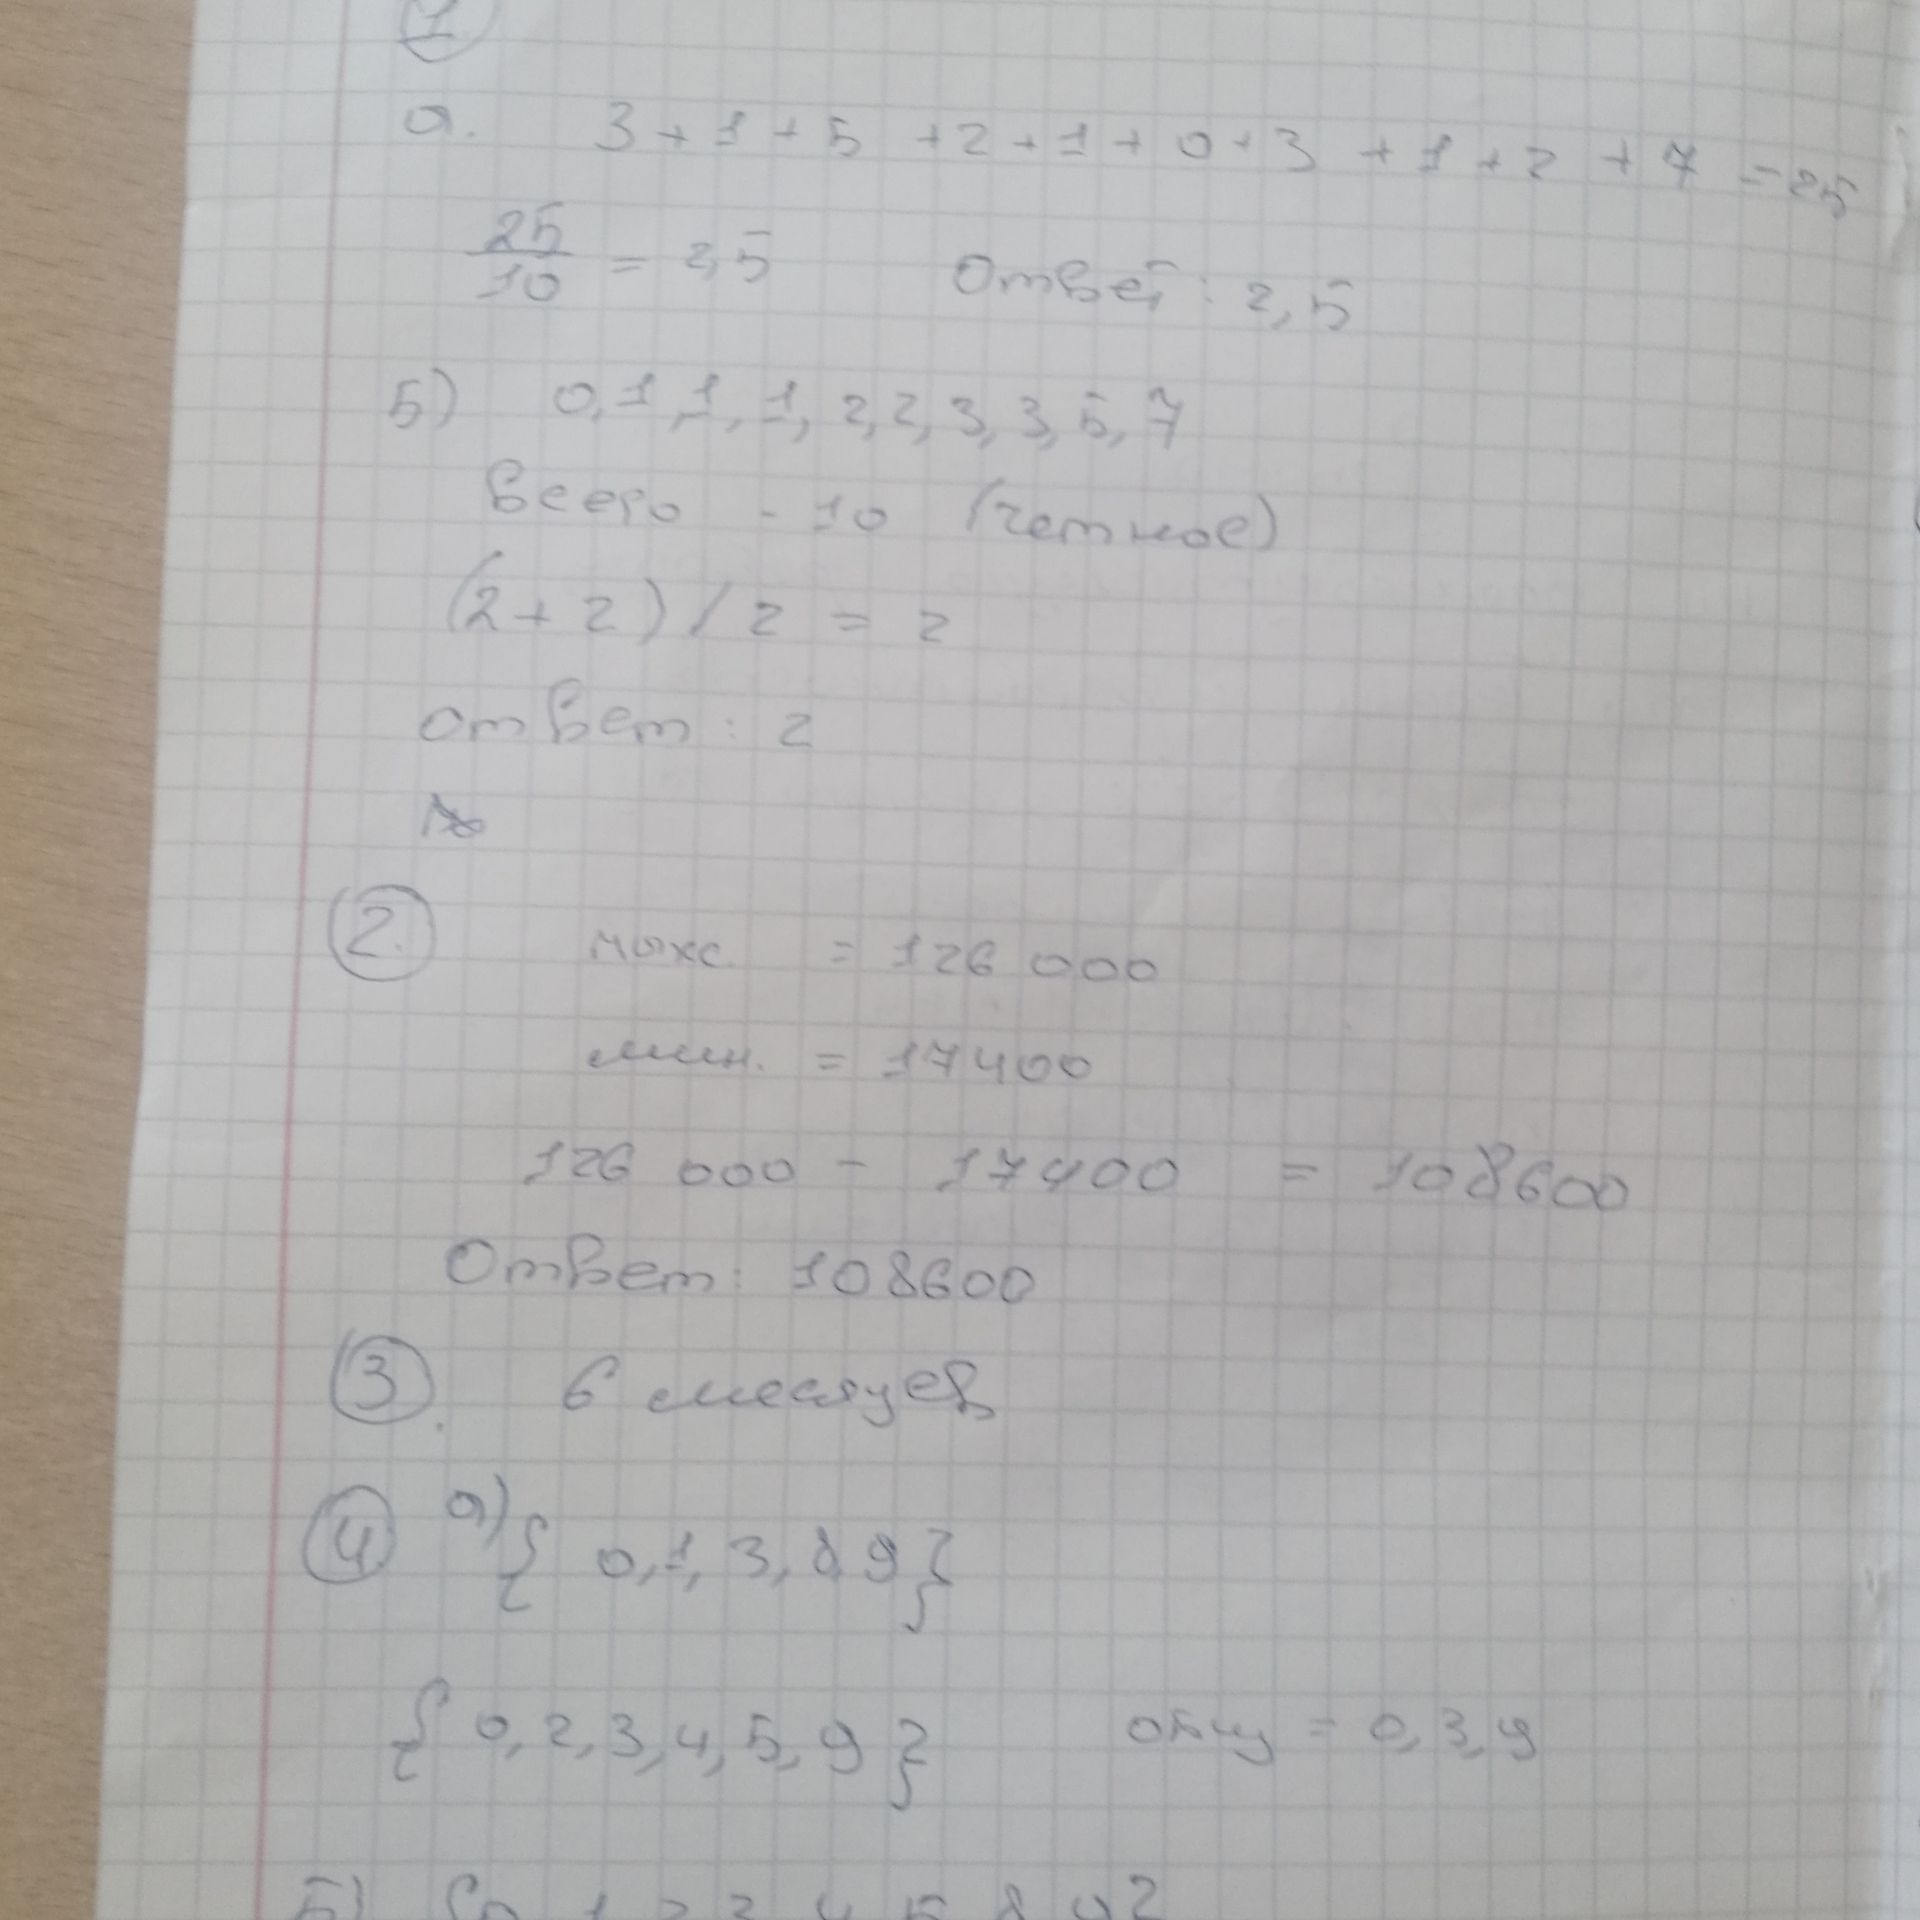 1
а. 3 + 1 + 5 + 2 + 1 + 0 + 3 + 1 + 2 + 7 = 25
25/10 = 2,5 Ответ: 2,5
Б) 0, 1, 1, 1, 2, 2, 3, 3, 5, 7
Всего - 10 (четное)
(2 + 2) / 2 = 2
ответ: 2
2. макс = 126 000
мин. = 17400
126 000 - 17400 = 108600
Ответ: 108600
3. 6 месяцев
4 а) { 0, 1, 3, 8 9 }
{ 0, 2, 3, 4, 5, 9 } общ = 0, 3, 9
Б) {0 1 2 3 4 5 8 9}